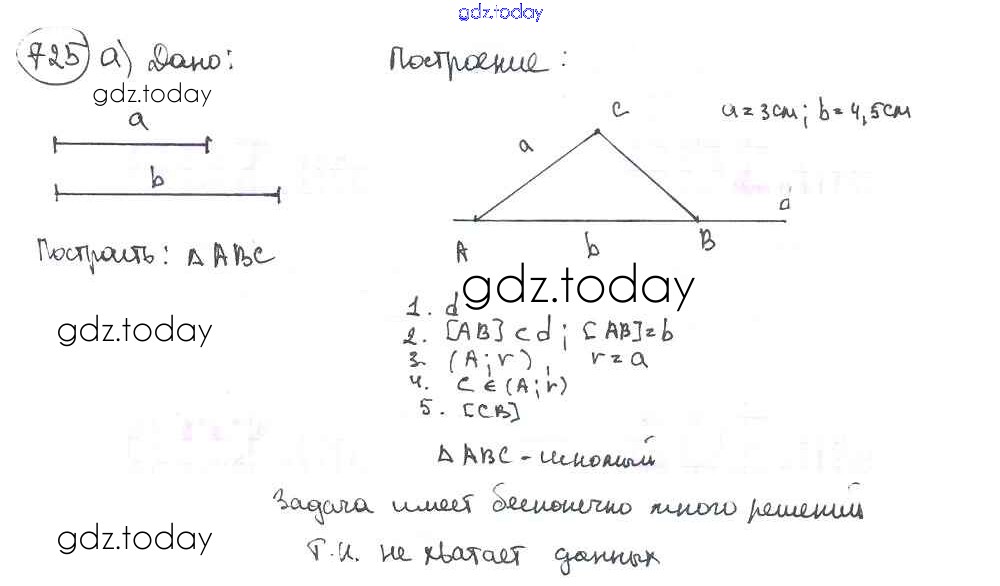 gdz.today
725 а) Дано:
gdz.today
a
b
Построить: Δ ABC
gdz.today
Построение:
a = 3см; b = 4,5см
C
a
d
A
b
B
gdz.today
1. d
2. [AB] ⊂ d; [AB] = b
3. (A; r), r = a
4. C ∈ (A; r)
5. [CB]
Δ ABC - искомый
Задача имеет бесконечно много решений
т.к. не хватает данных
gdz.today